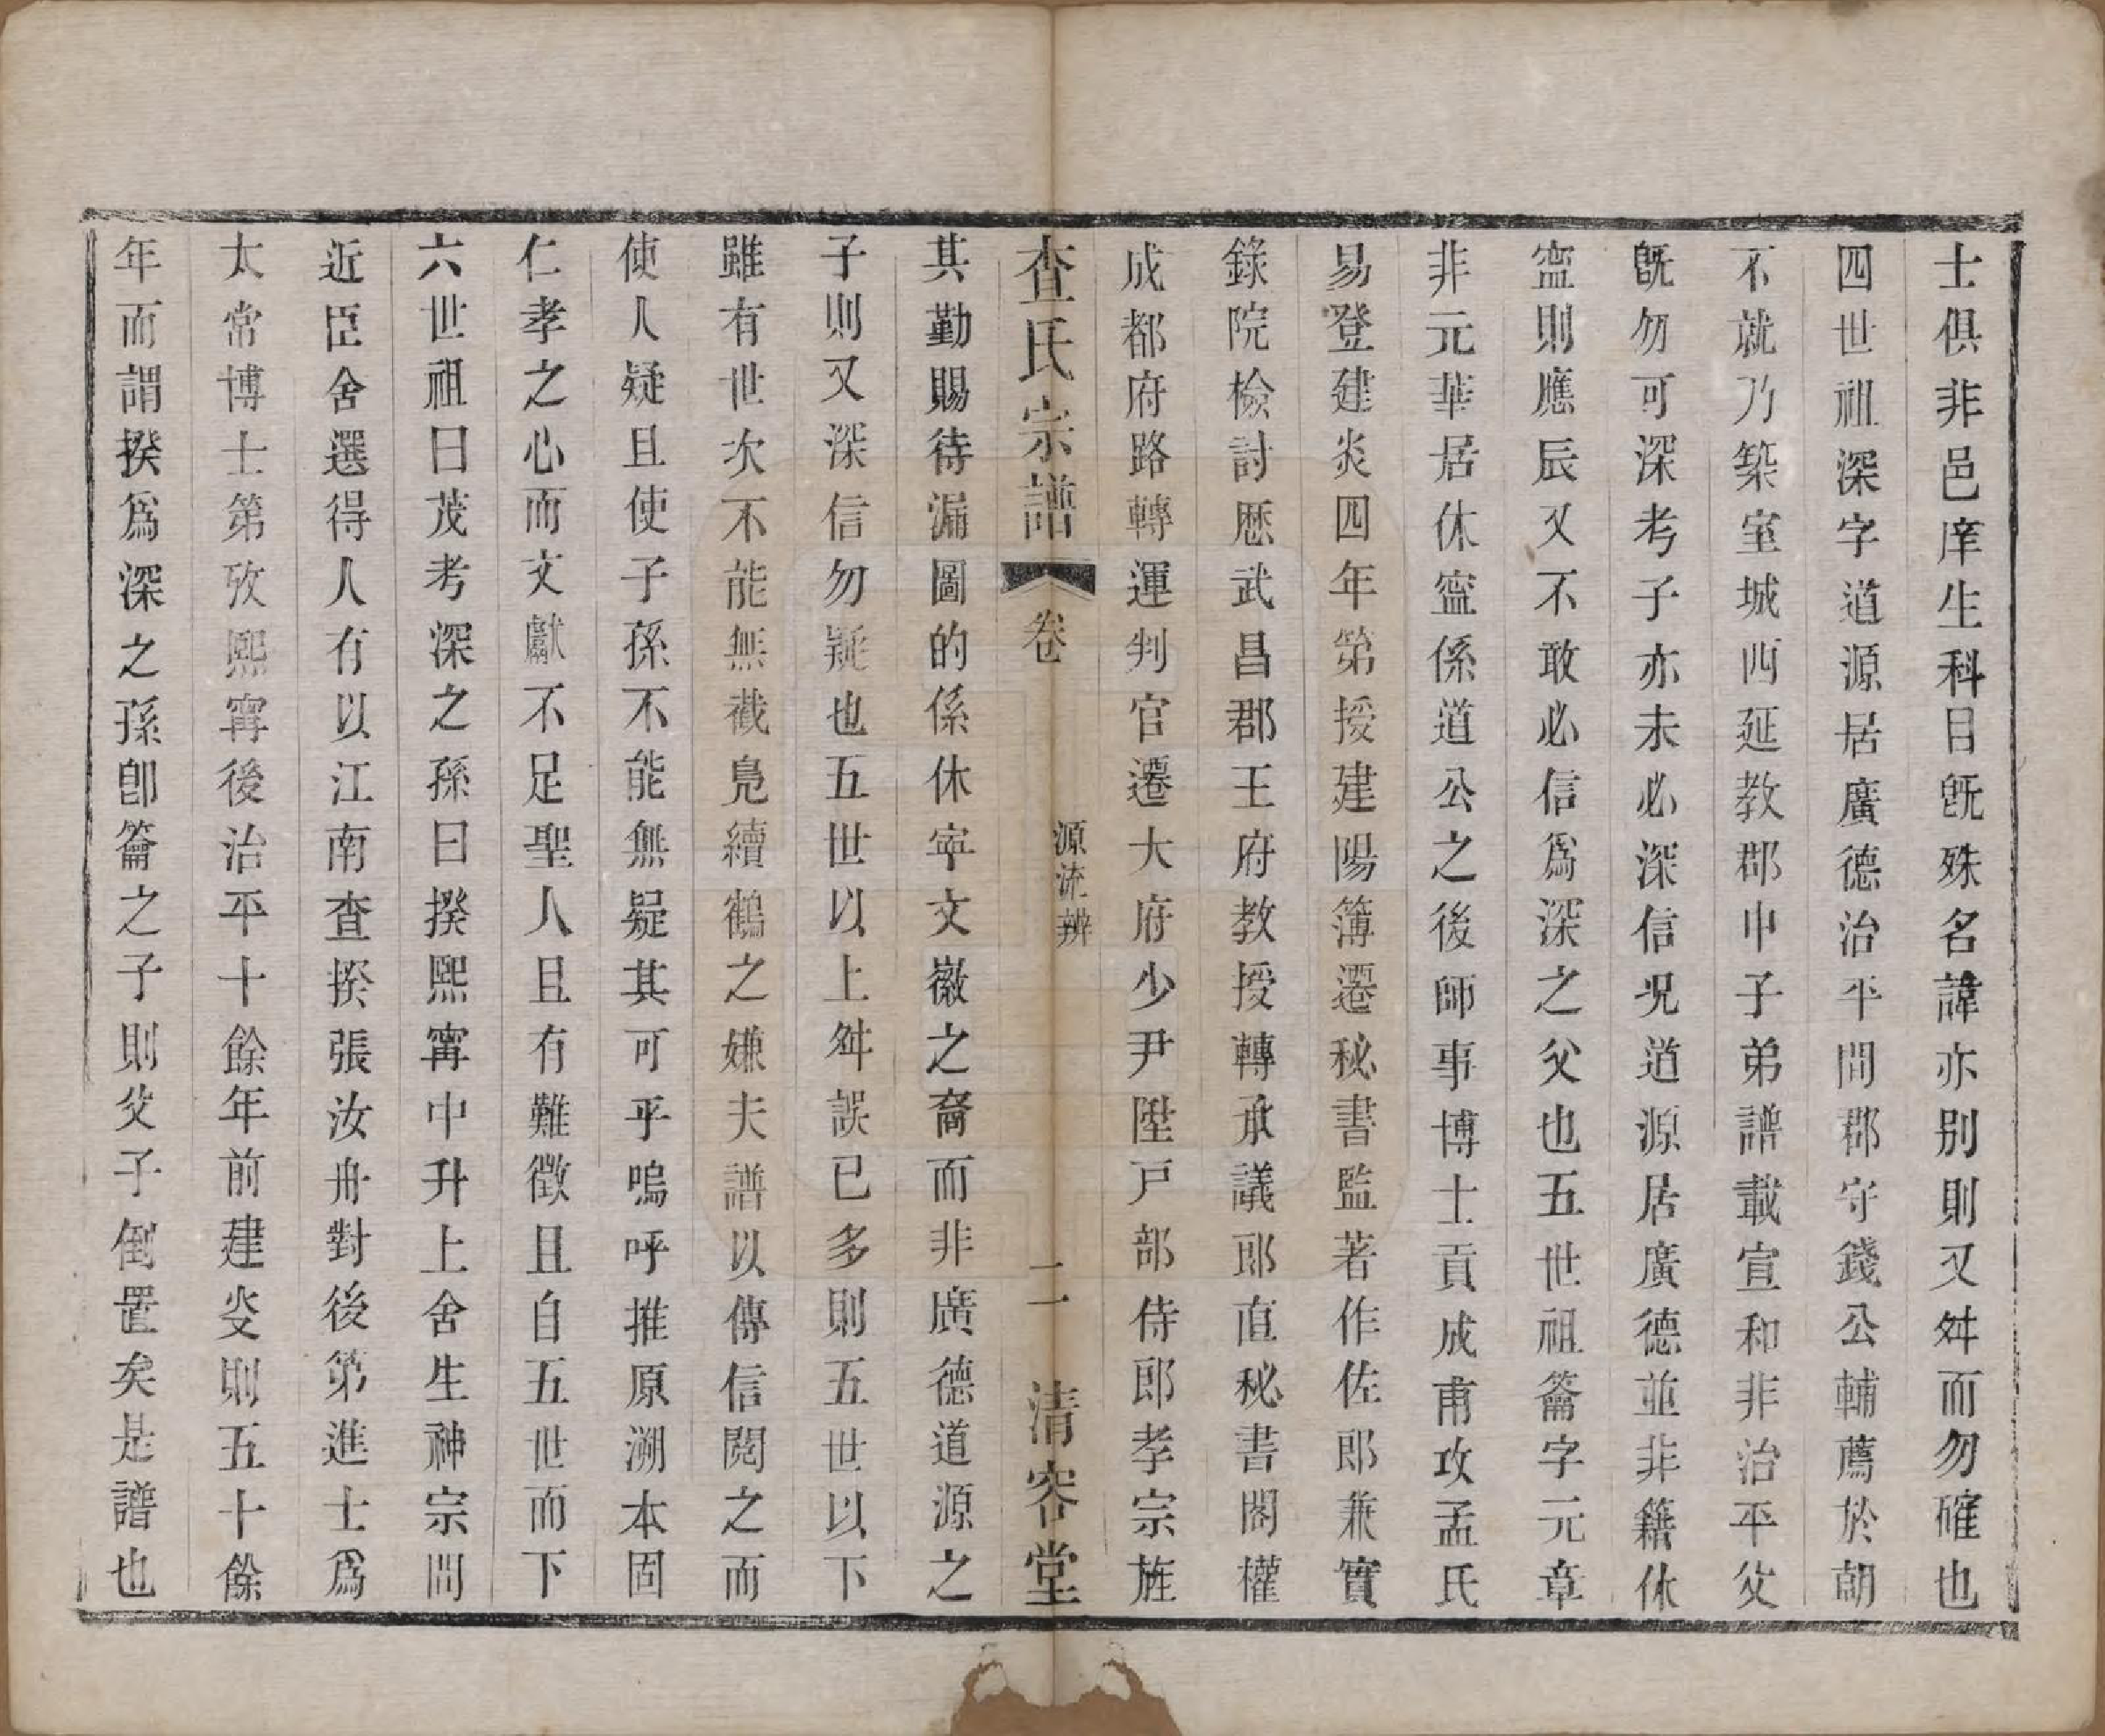 士俱非邑庠生科目旣殊名諱亦别則又舛而勿確也
四世祖深字道源居廣德治平間郡守錢公輔薦於朝
不就乃築室城西延教郡中子弟譜載宣和非治平父
旣勿可深考子亦未必深信况道源居廣德並非籍休
寧則應辰又不敢必信爲深之父也五世祖籥字元章
非元華居休寧係道公之後師事博士貢成甫攻孟氏
易登建炎四年第授建陽簿遷秘書監著作佐郎兼實
錄院檢討歷武昌郡王府教授轉承議郎直秘書閣權
成都府路轉運判官遷大府少尹陞戸部侍郎孝宗旌
查氏宗譜 卷 源流辨 二 清容堂
其勤賜待漏圖的係休寧文徽之裔而非廣德道源之
子則又深信勿疑也五世以上舛誤已多則五世以下
雖有世次不能無截鳧續鶴之嫌夫譜以傳信閱之而
使人疑且使子孫不能無疑其可乎嗚呼推原溯本固
仁孝之心而文獻不足聖人且有難徵且自五世而下
六世祖曰茂考深之孫曰揆熙寧中升上舍生神宗問
近臣舍選得人有以江南查揆張汝舟對後第進士爲
太常博士第攷熙寧後治平十餘年前建炎則五十餘
年而謂揆爲深之孫卽籥之子則父子倒置矣是譜也